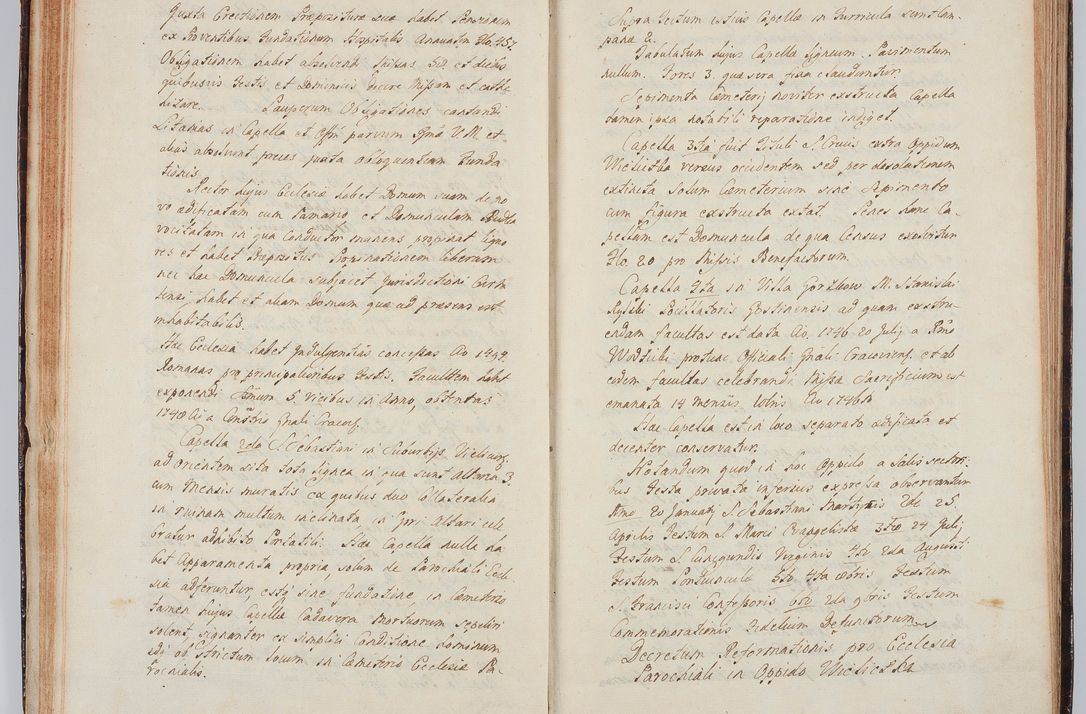 Juxta Erectionem Præpositura sua habet Pensionum
ex Proventibus Fundationum Hospitalis Annuatim Flo. 457
Obligationem habet absolvendi Missas 52 et diebus
quibusvis Festis et Dominicis dicere Missam et cathe
rizare. Pauperum Obligationes cantandi
Litanias in Capella et Offm parvum Bmæ V. M. et
alias absolvunt preces juxta obloquentiam Funda
tionis.
Rector hujus Ecclesiæ habet Domum suam de no
vo ædificatam cum Pomario et Domunculam
vocitatam in qua Conductor manens propinat liquo
res et habet Præpositus Propinationem liberam
nec hæc Domuncula subjacet Jurisdictioni
habet et aliam Domum quæ ad præsens est
inhabitabilis.
Hæc Ecclesia habet Indulgentias concessas Ao 1492
Romanas pro principalioribus Festis. Faculttem habet
exponendi Ssmum 5 Vicibus in Anno, obtentas
1748 Ai a Consistris Gnali Cracov.
Capella 2da S. Sebastiani in Suburbijs
ad orientem sita tota lignea in qua sunt Altaria 3
cum Mensis muratis ex quibus duo Collateralia
in ruinam multum inclinata in Altari cele
bratur adhibito Portatili. Hæc Capella nulla ha
bet Apparamenta propria, solum de Parochiali Eccle
sia adferuntur, estq sine fundatione, in Cœmeterio
tamen hujus Capellæ Cadavera Mortuorum sepeliri
solent, signanter ex simplici Conditione hominum
idq ob strictum locum in Cœmeterio Ecclesiæ Pa-
rochialis.
Supra Tectum istius Capellæ in Turricula sunt Cam-
panæ 2.
Tabulatum hujus Capellæ ligneum. Pavimentum
nullum. Fores 3. quæ sera fixa clauduntur.
Sepimenta Cœmeterij noviter exstructa Capella
tamen ipsa notabili reparatione indiget.
Capella 3tia fuit Tituli S. Crucis extra Oppidum
Wieliczka versus occidentem sed per desolationem
extincta solum Cœmeterium sine sepimento
cum figura exstructa extat. Penes hanc Ca-
pellam est Domuncula de qua Census exolvitur
Flo. 20 pro Missis Benefactorum.
Capella 4ta in Villa Gorzkow M. Stanislai
ad quam exstru-
endam facultas est data Ao. 1746 20 Julij a Rmo
Wodzicki protunc Officiali Gnali Cracovieng, et ab
eodem facultas celebrandi Missæ Sacrificium est
emanata 14 Mensis 8bris Ao 1746to
Hæc Capella est in loco separato ædificata et
decenter conservatur.
Notandum quod in hoc Oppido a Salis sectori-
bus Festa privata inferius expressa observantur
1mo 20 Januarij S. Sebastiani Martyris 2do 25
Aprilis Festum S. Marci Evangelistæ 3tio 24 Julij
Festum S. Cunegundis Virginis 4to 2da Augusti
Festum Portiunculæ 5to 4ta 8bris Festum
S. Francisci Confessoris 6to 2da 9bris Festum
Commemorationis Fidelium Defunctorum
Decretum Reformationis pro Ecclesia
Parochiali in Oppido Wieliczka